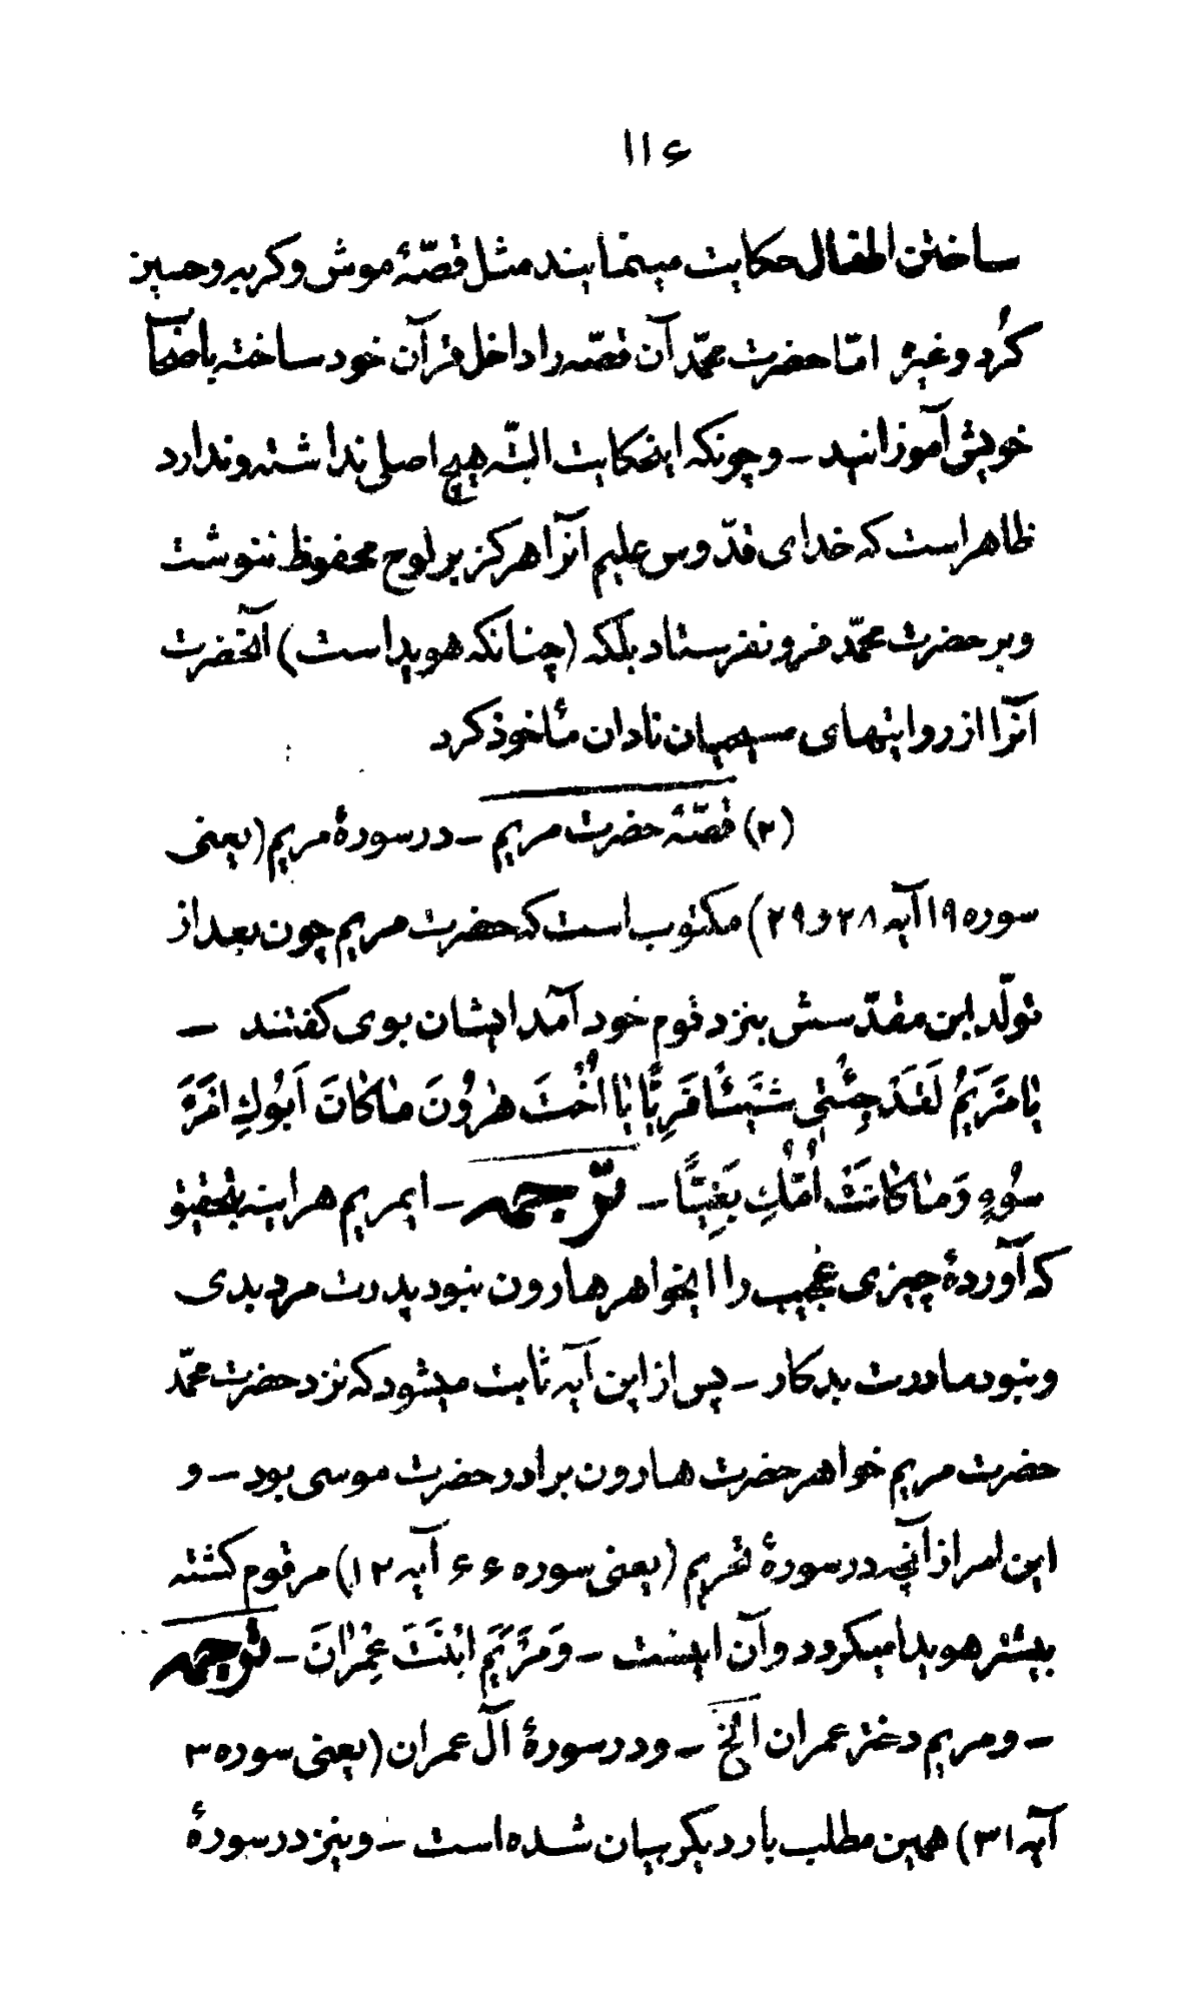 ۱۱۶
ساختن اطفال حکایت مینمایند مثل قصّهٔ موش و کربه و حسین
کُرد و غیره امّا حضرت محمّد آن قصّه را داخل قرآن خود ساخته باصحاب
خویش آموزانید – و چونکه اینحکایت البتّه هیچ اصلی نداشته و ندارد
ظاهر است که خدای قدّوس علیم آنرا هرکز بر لوح محفوظ ننوشت
و بر حضرت محمّد فرو نفرستاد بلکه (چنانکه هویداست) آنحضرت
آنرا از روایتهای مسیحیان نادان مأخوذ کرد
(۲) قصّهٔ حضرت مریم – در سورهٔ مریم (یعنی
سوره ۱۹ آیه ۲۸ و ۲۹) مکتوب است که حضرت مریم چون بعد از
تولّد ابن مقدّسش بنزد قوم خود آمد ایشان بوی کفتند –
یَا مَرْیَمُ لَقَدْ جِئْتِ شَیْئًا فَرِیًّا یَا اُخْتَ هٰرُونَ مَا کَانَ اَبُوكِ امْرَءَ
سُوءٍ وَمَا کَانَتْ اُمُّكِ بَغِیًّا – ترجمه – ایمریم هراینه بتحقیق
که آوردهٔ چیزی عجیب را ایخواهر هارون نبود پدرت مرد بدی
و نبود مادرت بدکار – پس از این آیه ثابت میشود که نزد حضرت محمّد
حضرت مریم خواهر حضرت هارون برادر حضرت موسی بود – و
این امر از آنچه در سورهٔ تحریم (یعنی سوره ۶۶ آیه ۱۲) مرقوم کشته
بیشتر هویدا میکردد و آن اینست – وَمَرْیَمَ ابْنَتَ عِمْرٰانَ – ترجمه
– و مریم دختر عمران الخ – و در سورهٔ آل عمران (یعنی سوره ۳
آیه ۳۱) همین مطلب بار دیکر بیان شده است – و نیز در سورهٔ